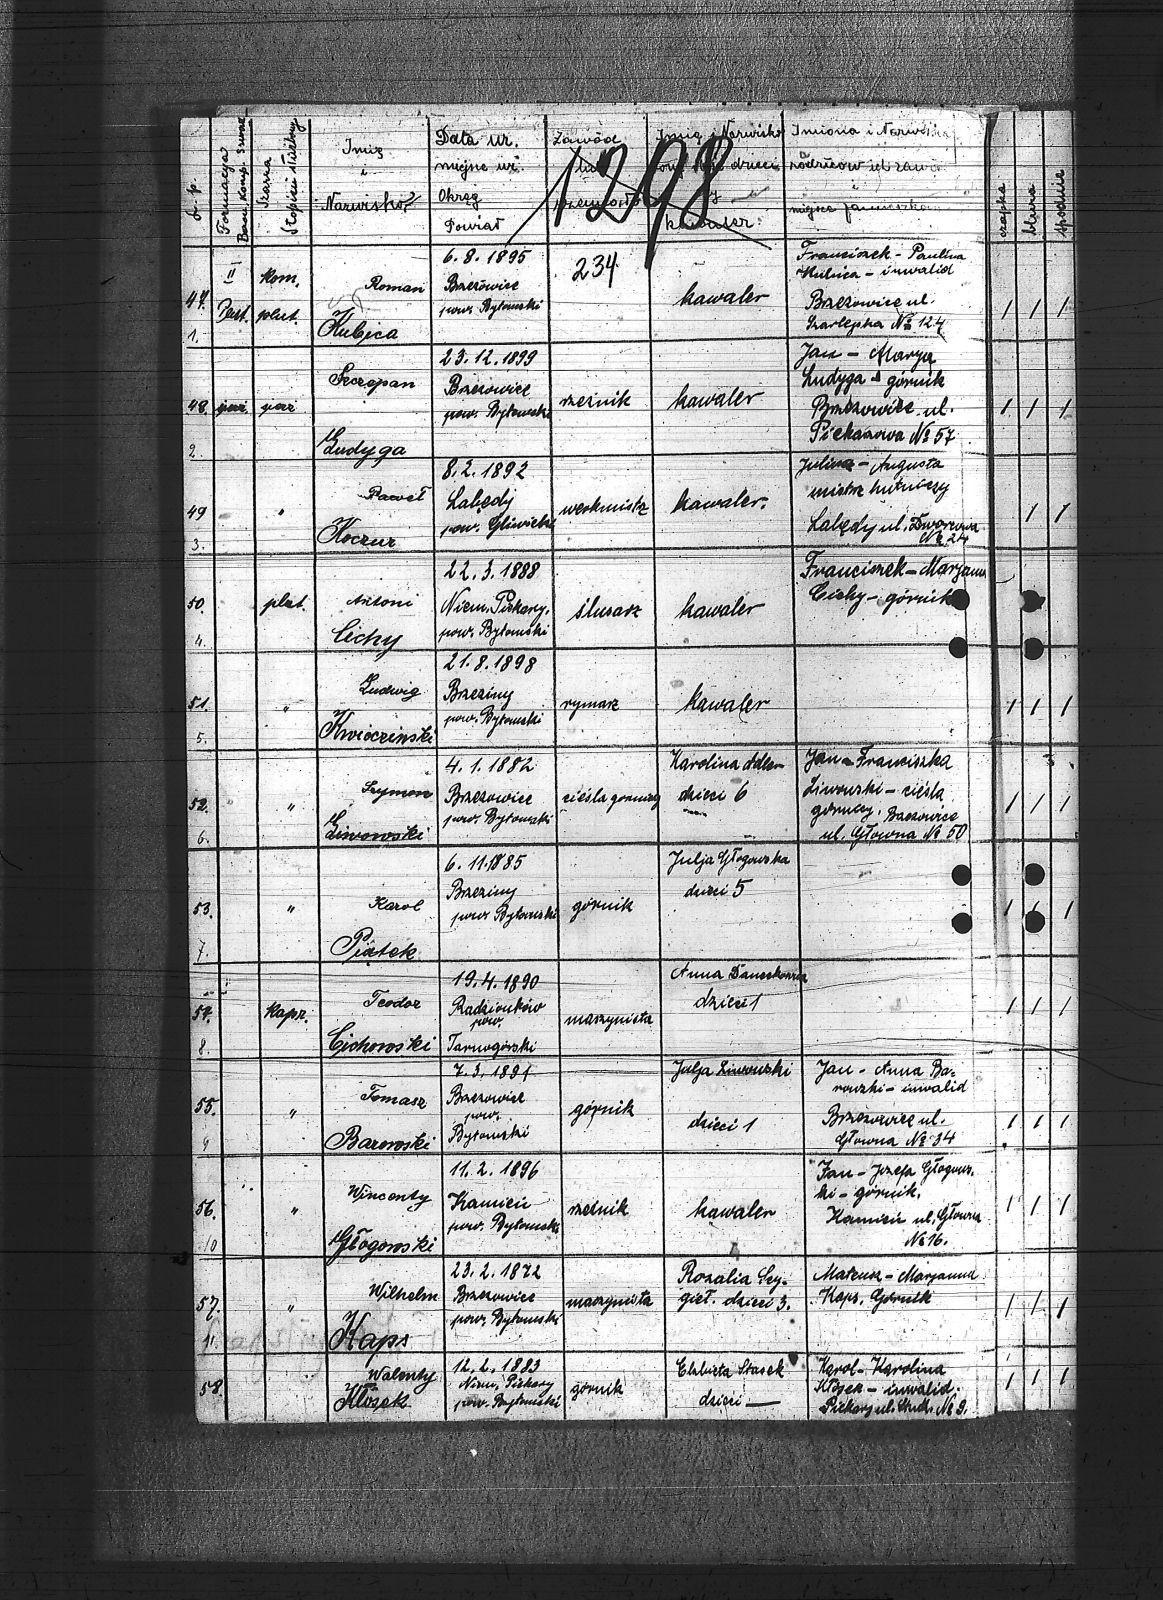 Imię
i
Nazwisko
Data ur.
miejsce ur.
Okręg
Powiat
Zawód
1298
Imię i Nazwisko
dzieci
kawaler
Imiona i Nazwiska
rodziców
miejsce
czapka
bluza
spodnie
234
47.
1.
II
kom.
plut.
Roman
Kubica
6. 8. 1895
Brzezowice
pow. Bytomski
kawaler
Franciszek - Paulina
Kubica - inwalid
Brzezowice ul.
Szarlejska № 124
1 1 1
48.
2.
Szczepan
Ludyga
23. 12. 1899
Brzezowice
pow. Bytomski
rzeźnik
kawaler
Jan - Marya
Ludyga - górnik
Brzezowice ul.
Piekarowa № 57
1 1 1
49
3.
"
Paweł
Koczur
8. 2. 1892
Łabędy
pow. Gliwicki
werkmistrz
kawaler.
Juliusz - Augusta
mistrz hutniczy
Łabędy ul. Dworcowa
№ 24
1 1
50.
4.
plut.
Antoni
Cichy
22. 3. 1888
Niem. Piekary.
pow. Bytomski
ślusarz
kawaler
Franciszek - Marjanna
Cichy - górnik
51.
5.
"
Ludwig
Kwieczinski
21. 8. 1898
Brzeziny
pow. Bytomski
rymarz
kawaler
1 1 1
52.
6.
"
Szymon
Liwowski
4. 1. 1882
Brzezowice
pow. Bytomski
cieśla górniczy
Karolina Adler
dzieci 6
Jan - Franciszka
Liwowski - cieśla
górniczy. Brzezowice
ul. Głowna № 50
1 1 1
53.
7.
"
Karol
Piątek
6. 11. 1885
Brzeziny
pow. Bytomski
górnik
Julja Głogowska
dzieci 5
1 1 1
54.
8.
Kapr.
Teodor
Cichowski
19. 4. 1890
Radzionków
pow.
Tarnogórski
maszynista
Anna
dzieci 1
1 1 1
55.
9
"
Tomasz
Barowski
7. 3. 1891
Brzezowice
pow.
Bytomski
górnik
Julja Liwowski
dzieci 1
Jan - Anna Ba-
rowski - inwalid
Brzezowice ul.
Głowna № 34
1 1 1
56.
10
"
Wincenty
Głogowski
11. 2. 1896
Kamień
pow. Bytomski
rzeźnik
kawaler
Jan - Jozefa Głogow-
ski - górnik.
Kamień ul. Głowna
№ 16.
1 1 1
57.
11.
"
Wilhelm
Kaps
23. 2. 1872
Brzezowice
pow. Bytomski
maszynista
Rozalia Szy-
gieł. dzieci 3.
Mateusz - Marjanna
Kaps. Górnik
1 1 1
58.
Walenty
Kłosek
12. 2. 1883
Niem. Piekary
pow. Bytomski
górnik
Elżbieta Stasek
dzieci —
Karol - Karolina
Kłosek - inwalid.
Piekary ul. № 9.
1 1 1